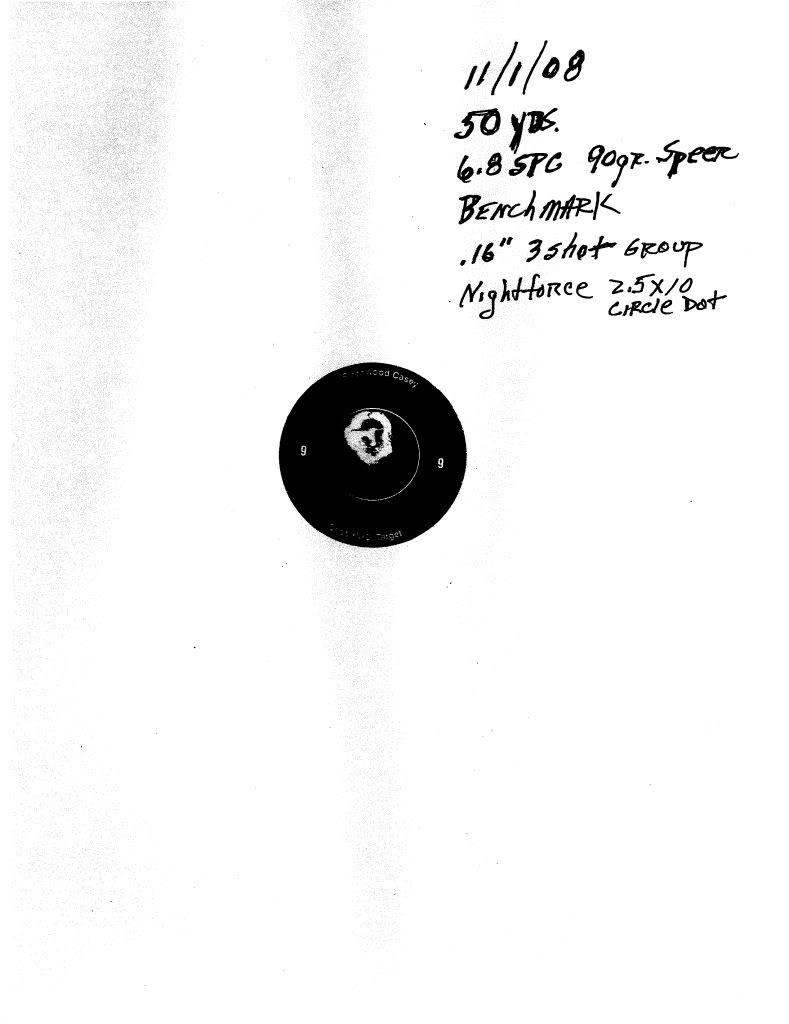 11/1/08
50 YDS.
6.8 SPC 90gr. Speer
BENChMARK
.16" 3 shot GROUP
Nightforce 2.5X10
CIRCle Dot
Casey
9
9
Target